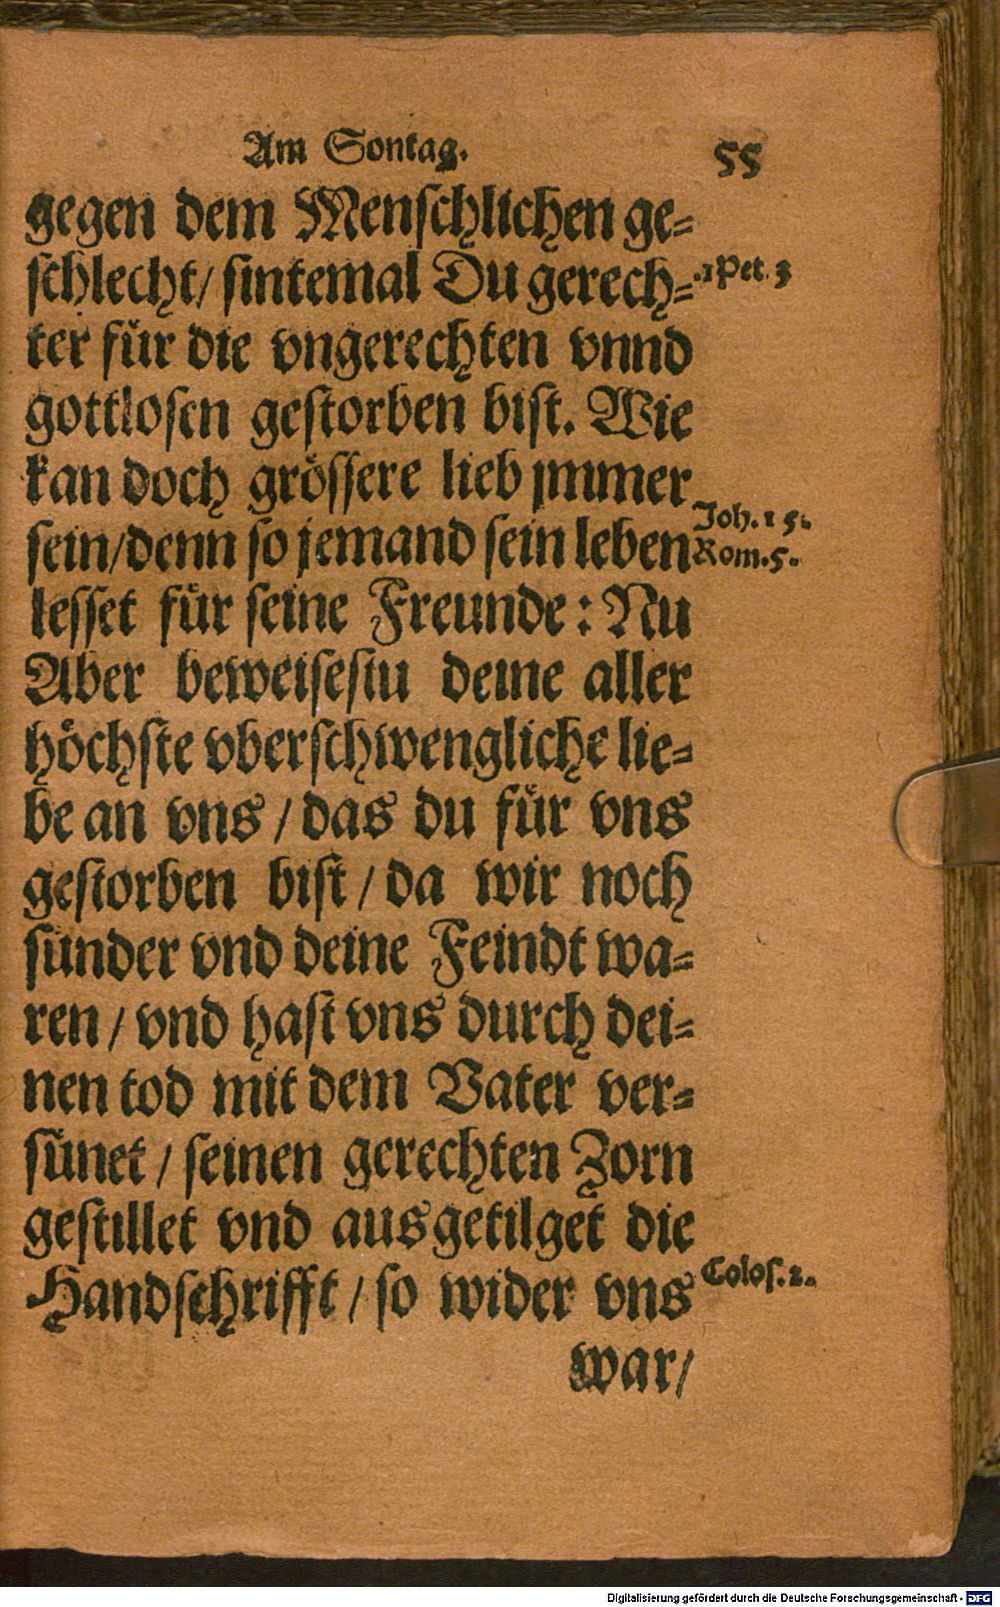 Am Sontag. 55
gegen dem Menschlichen ge=
schlecht/ sintemal Du gerech=
1 Pet. 3
ter für die vngerechten vnnd
gottlosen gestorben bist. Wie
kan doch grössere lieb jmmer
sein/denn so jemand sein leben
Joh. 15.
Rom. 5.
lesset für seine Freunde: Nu
Aber beweisestu deine aller
höchste vberschwengliche lie=
be an vns / das du für vns
gestorben bist / da wir noch
sünder vnd deine Feindt wa=
ren / vnd hast vns durch dei=
nen tod mit dem Vater ver=
sünet / seinen gerechten Zorn
gestillet vnd ausgetilget die
Handschrifft / so wider vns
Colos. 2.
war/
Digitalisierung gefördert durch die Deutsche Forschungsgemeinschaft - DFG